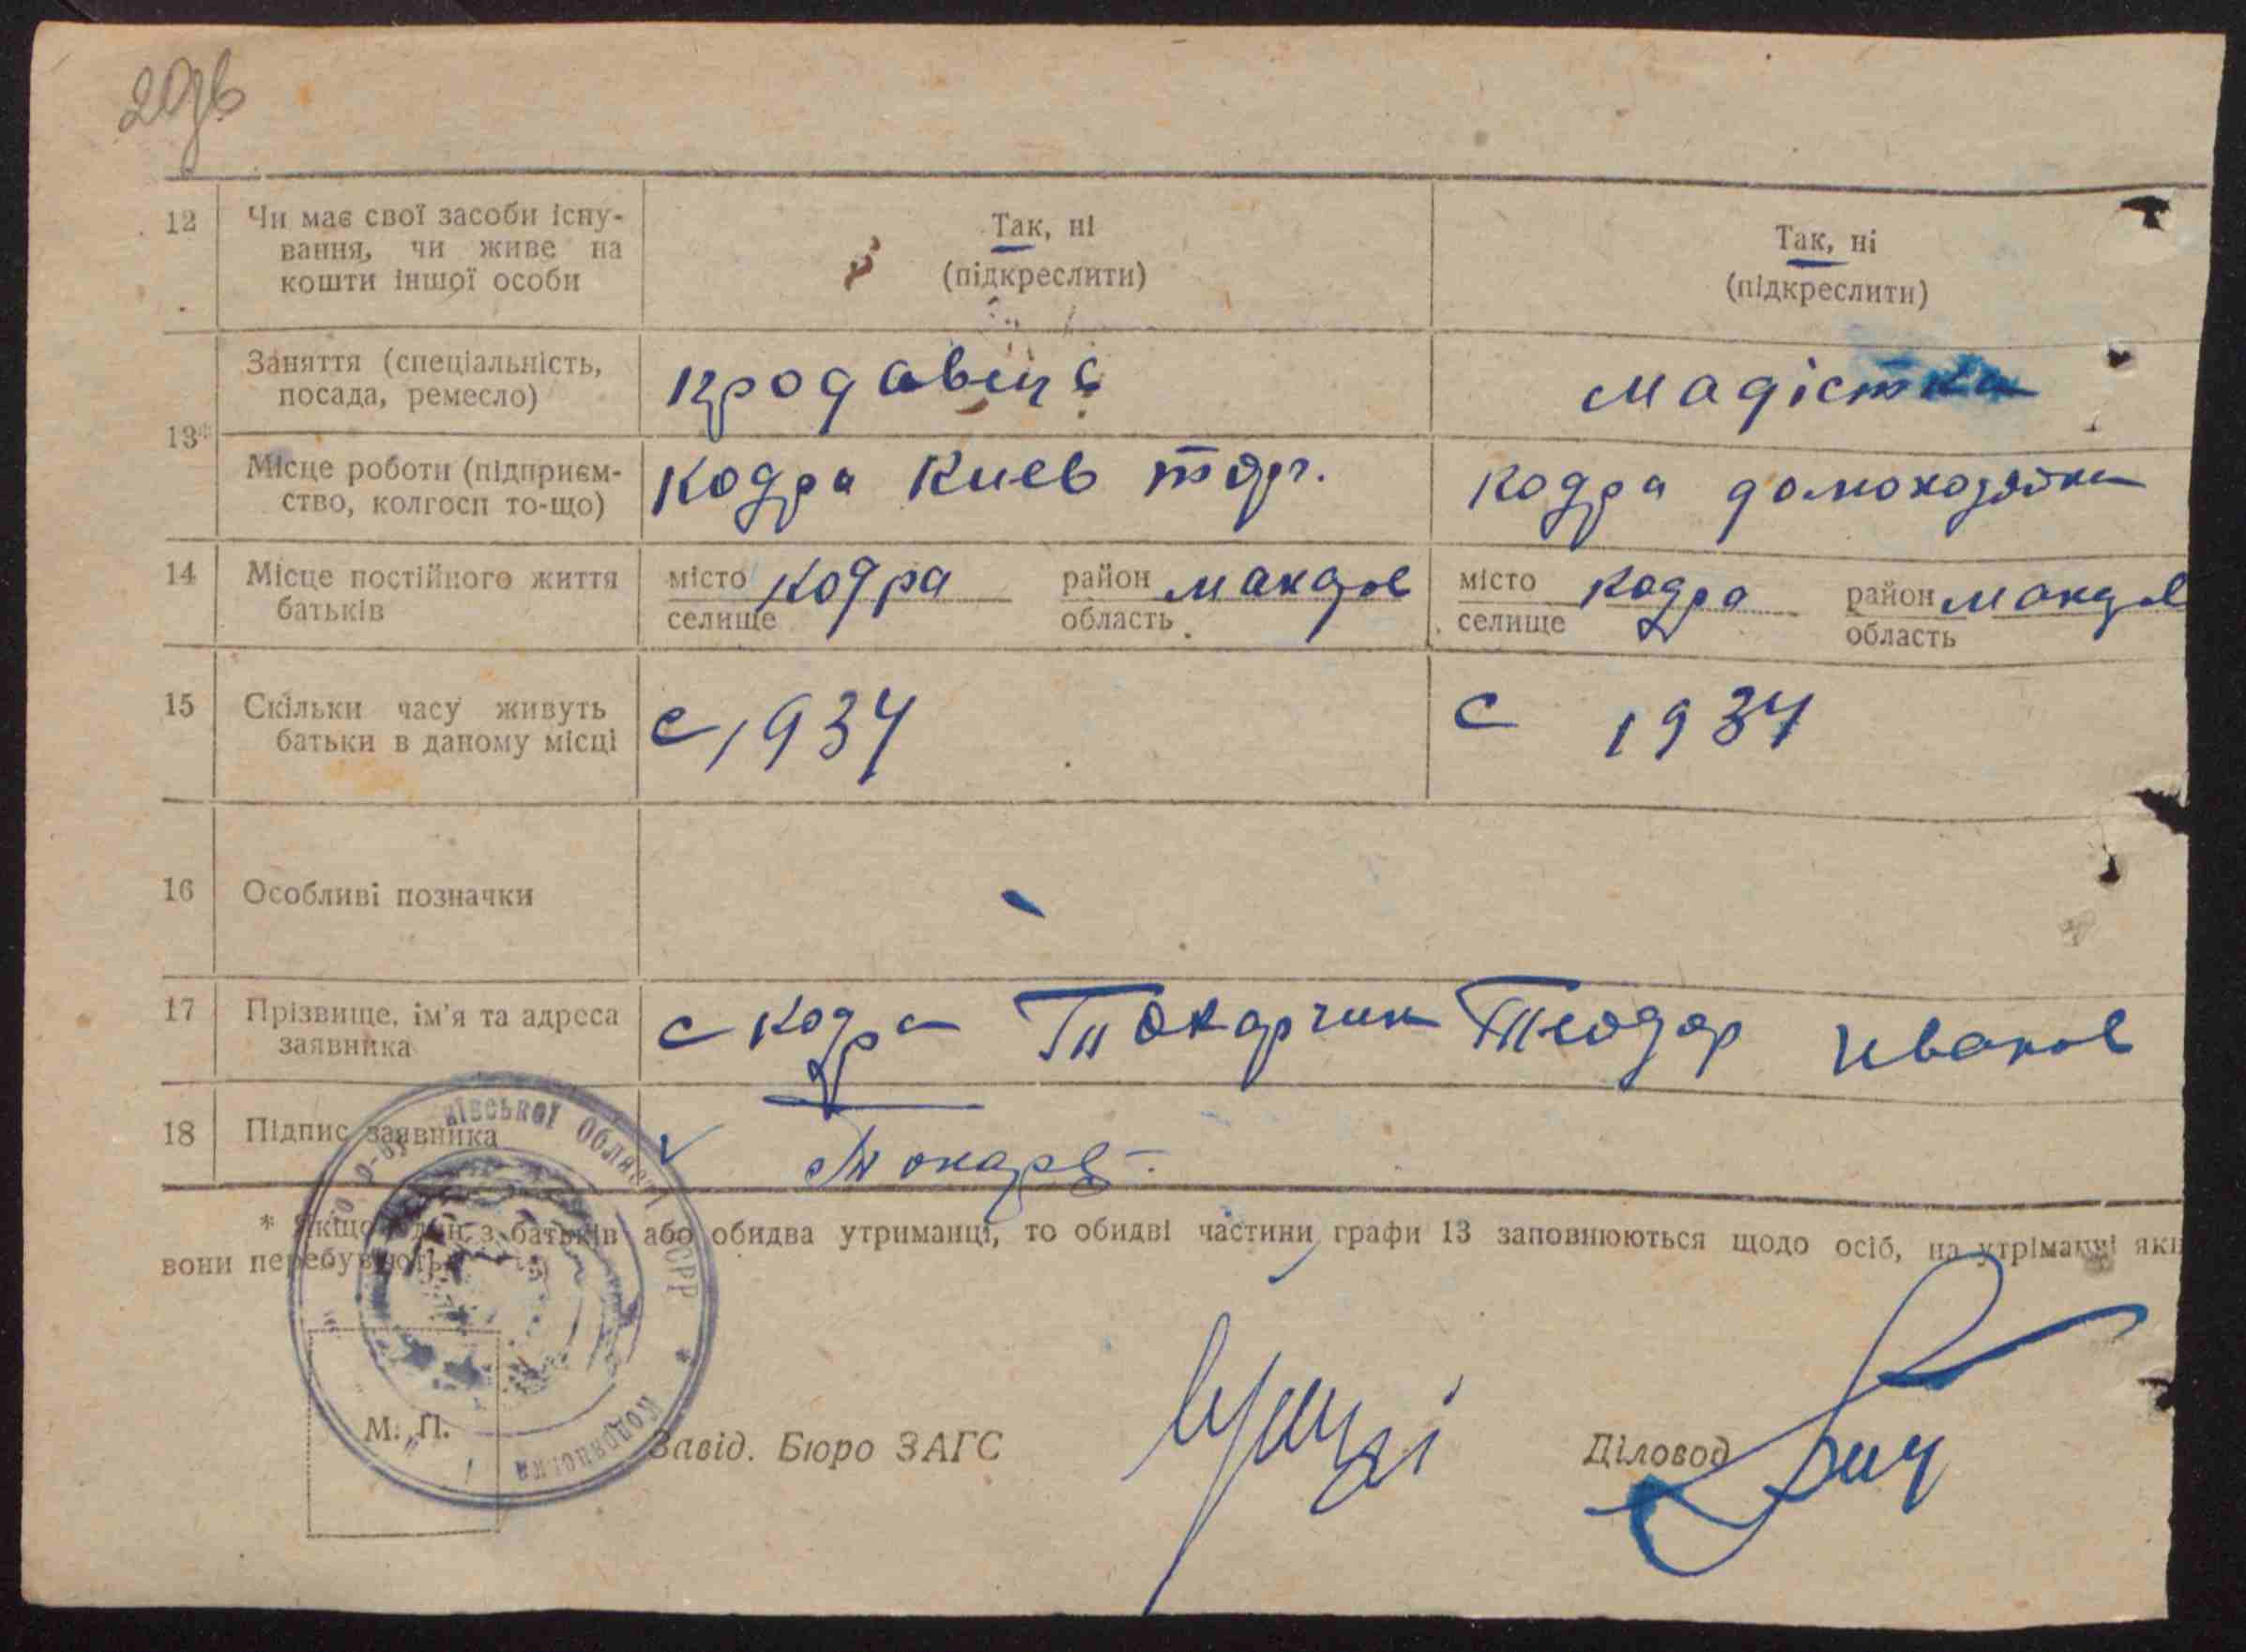 20зв
12 Чи має свої засоби існу-
вання, чи живе на
кошти іншої особи
Так, ні
(підкреслити)
Так, ні
(підкреслити)
13*
Заняття (спеціальність,
посада, ремесло)
продавец
модістка
Місце роботи (підприєм-
ство, колгосп то-що)
Кодра Киев торг.
Кодра домохозяйка
14 Місце постійного життя
батьків
місто
селище
Кодра
район
область
макаров
місто
селище
Кодра
район
область
макаров
15 Скільки часу живуть
батьки в даному місці
с 1934
с 1934
16 Особливі позначки
17 Прізвище, ім'я та адреса
заявника
с Кодра Токарчик Теодор Иванов
18 Підпис заявника
* Якщо один з батьків або обидва утриманці, то обидві частини графи 13 заповнюються щодо осіб, на утріманні яки
вони перебувають.
Київської Області УСРР * Кодрянська
М. П.
Завід. Бюро ЗАГС
Діловод